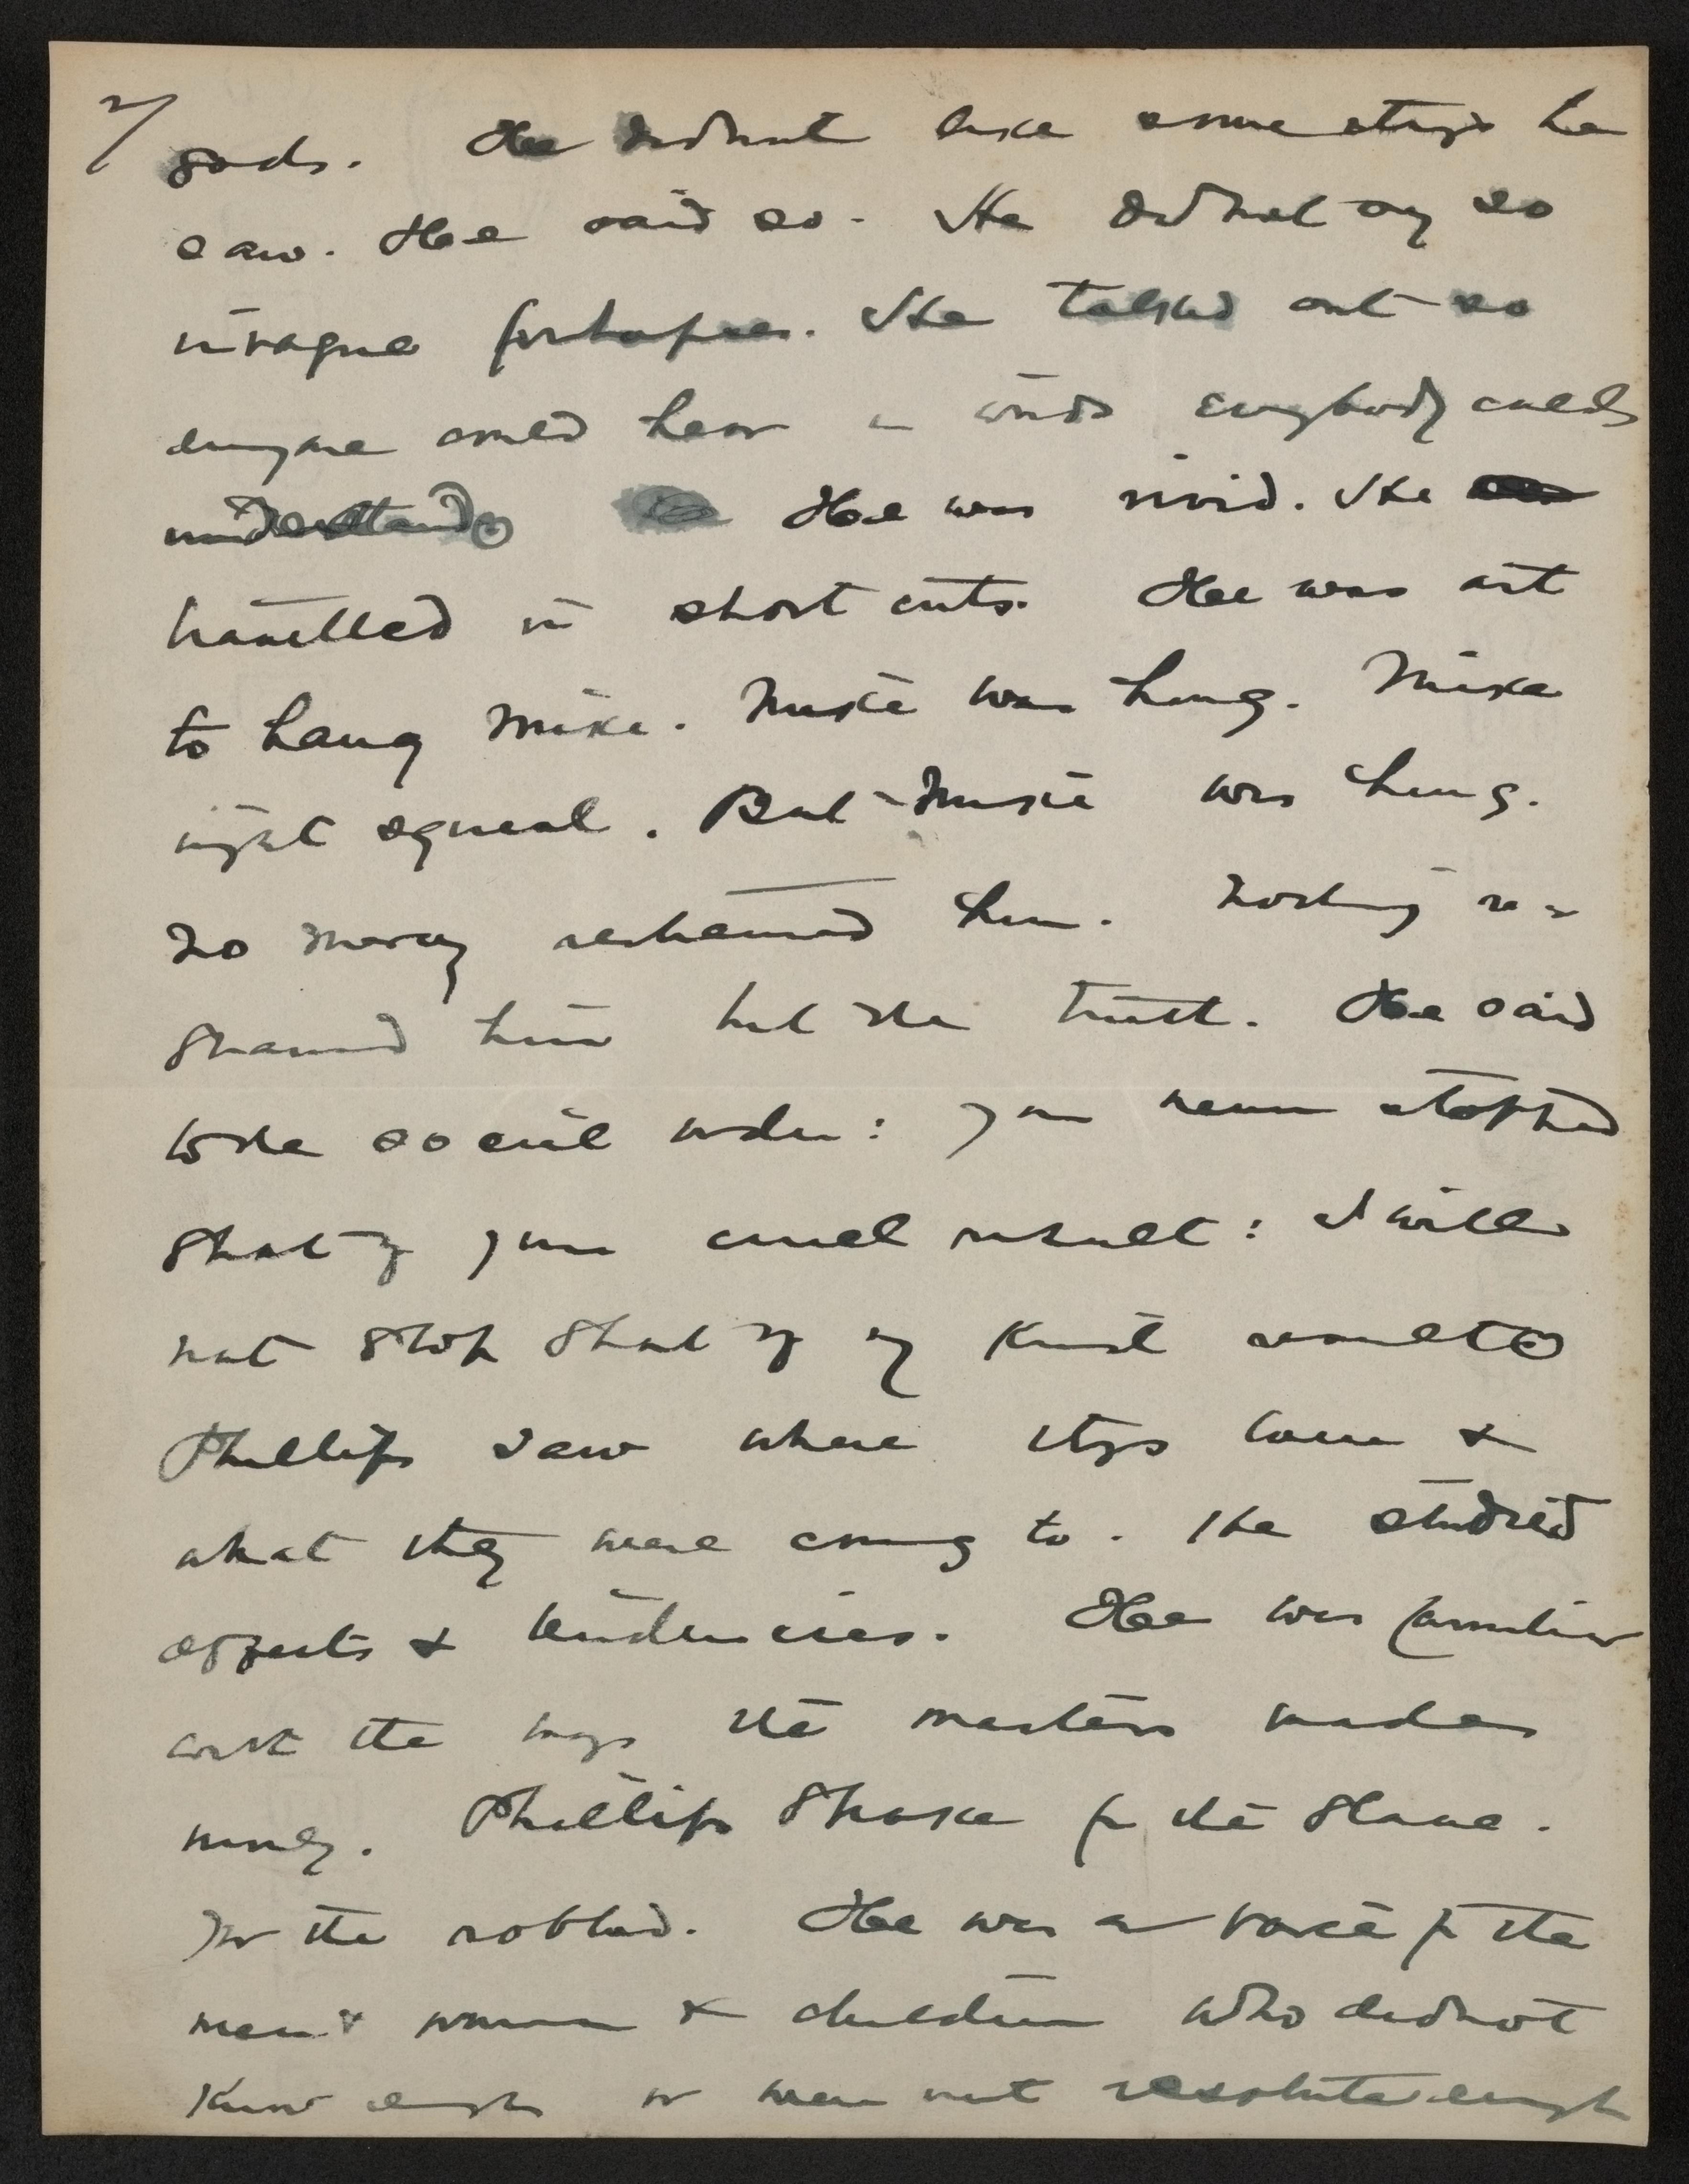 2/
gods. He didnot like some things he
saw. He said so. He didnot say so
in vague
everyone could hear in words everybody could
understand. He was vivid. He
travelled in short cuts. He was out
to hang Mike. Mike was hung. Mike
might squeal. But Mike was hung.
No mercy restrained him. Nothing re=
strained him but the truth. He said
to the social order: you never stopped
short of your cruel result: I will
not stop short of my kind result.
Phillips saw where things came &
what they were coming to. He studied
effects & tendencies. He was familiar
with the ways the masters made
money. Phillips spoke for the slave.
For the robbed. He was a voice for the
men & women & children who didnot
know enough or were not resolute enough